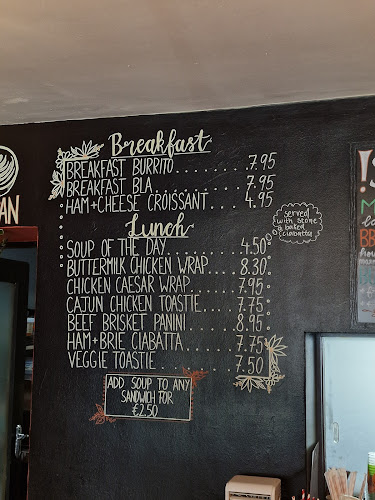 Breakfast
BREAKFAST BURRITO..........7.95
BREAKFAST BLA..............7.95
HAM+CHEESE CROISSANT....4.95
Lunch
SOUP OF THE DAY..........4.50
served
with stone
baked
ciabatta
BUTTERMILK CHICKEN WRAP....8.30
CHICKEN CAESAR WRAP.......7.95
CAJUN CHICKEN TOASTIE....7.75
BEEF BRISKET PANINI.......8.95
HAM+BRIE CIABATTA........7.75
VEGGIE TOASTIE...........7.50
ADD SOUP TO ANY
SANDWICH FOR
€2.50
AN